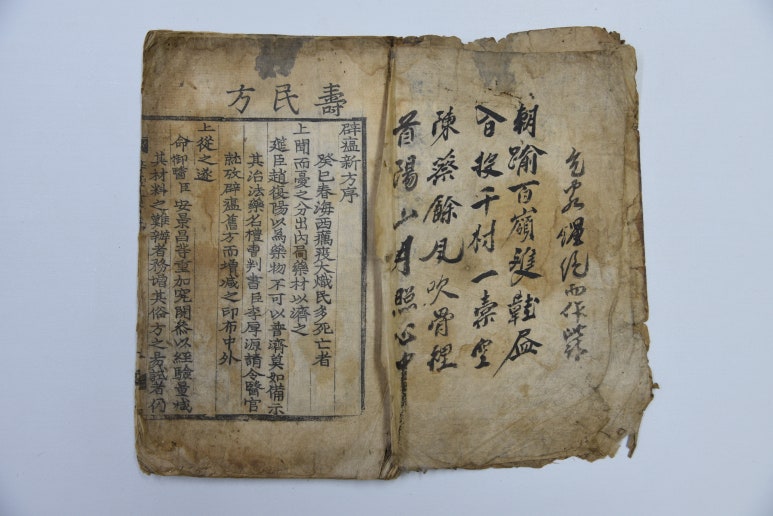 而作此
朝踰百嶺雙鞋
投千村一橐空
陳蔡餘風吹骨裡
首陽山月照心中
壽民方
辟瘟新方序
癸巳春海西癘疫大熾民多死亡者
上聞而憂之分出內局藥材以濟之
筵臣趙復陽以爲藥物不可以普濟莫如備示
其治法藥名禮曹判書臣李厚源請令醫官
就攷辟瘟舊方而增減之印布中外
上從之遂
命御醫臣安景昌等重加究閱叅以經驗量減
其材料之難辦者務增其俗方之易試者仍